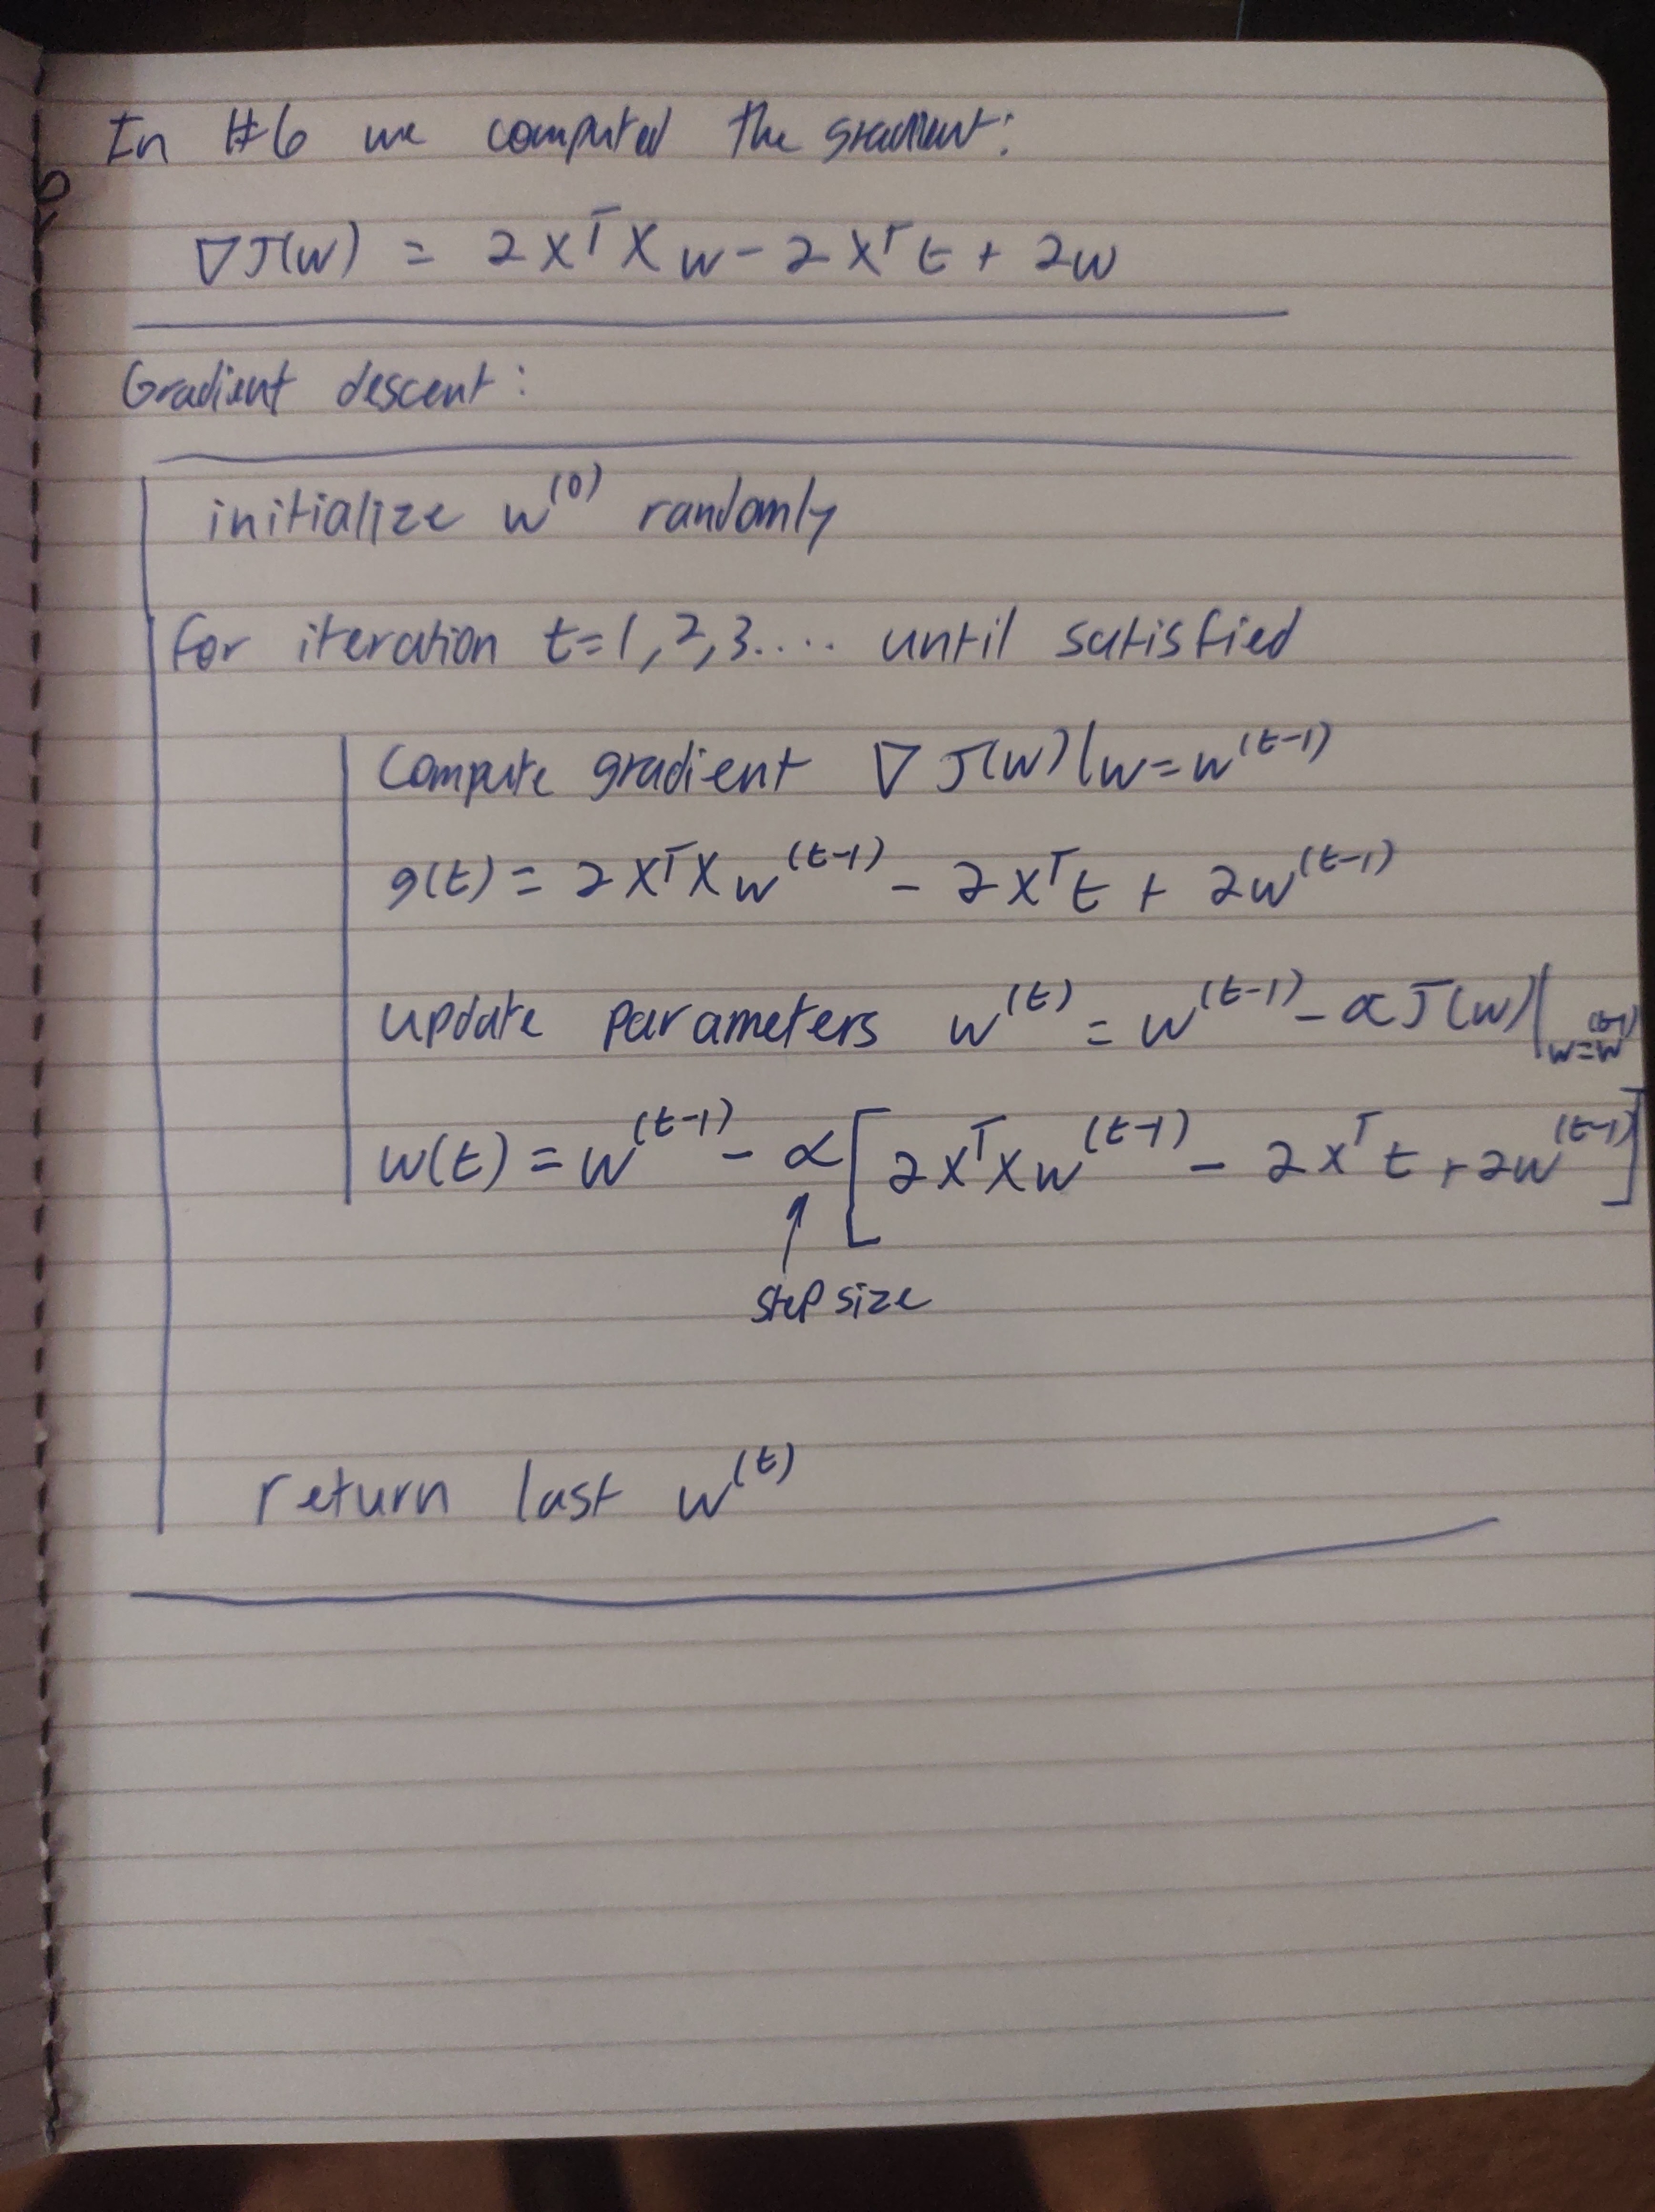 In #6 we computed the gradient:
∇J(w) = 2X^T X w - 2X^T t + 2w
Gradient descent:
initialize w^(0) randomly
for iteration t=1,2,3.... until satisfied
Compute gradient ∇J(w)|w=w^(t-1)
g(t) = 2X^T X w^(t-1) - 2X^T t + 2w^(t-1)
update parameters w^(t) = w^(t-1) - αJ(w)|w=w^(t-1)
w(t) = w^(t-1) - α[2X^T X w^(t-1) - 2X^T t + 2w^(t-1)]
↑
step size
return last w^(t)